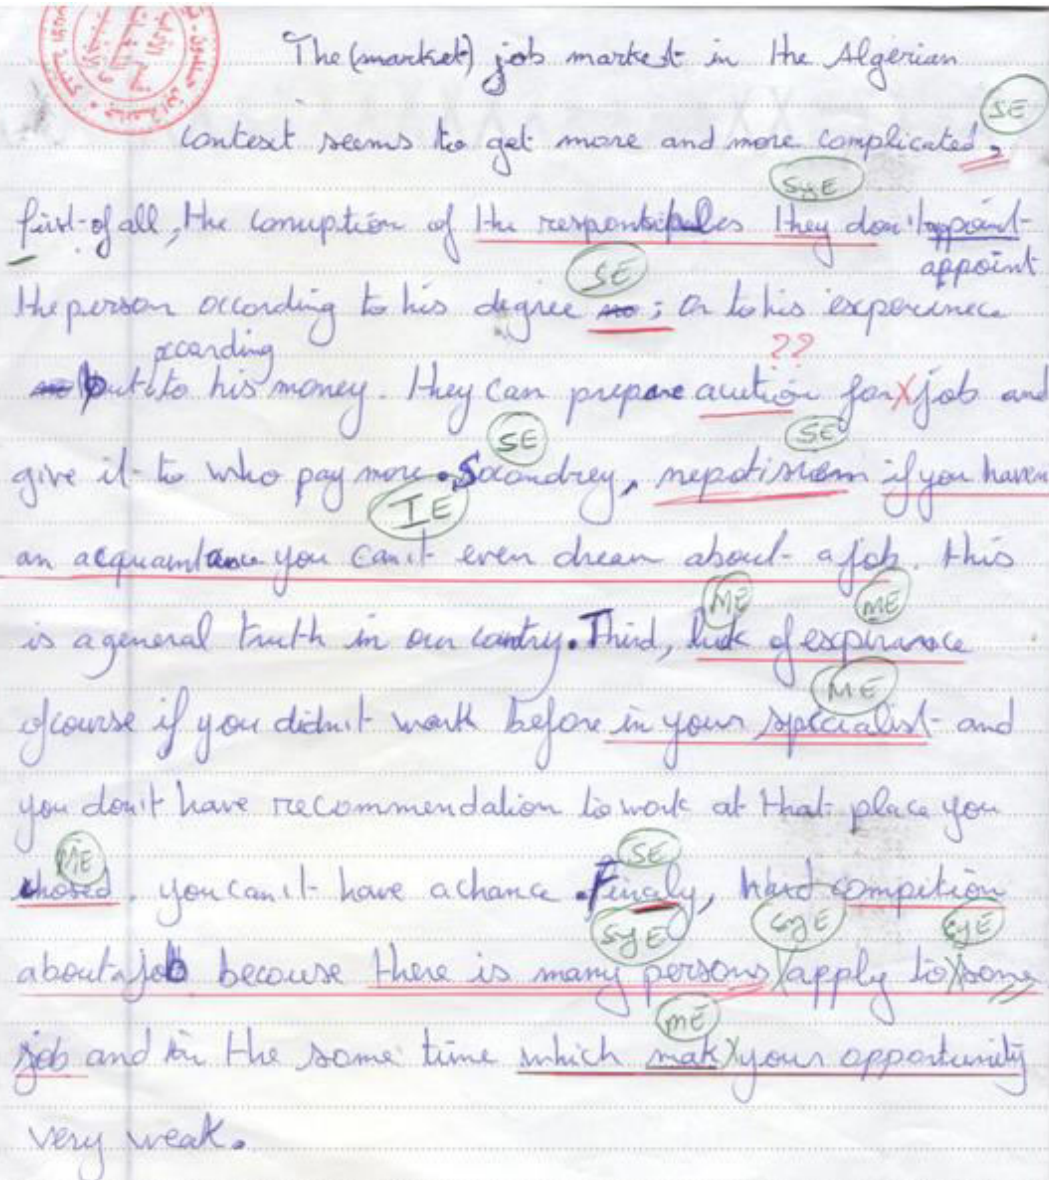 The (market) job market in the Algerian
SE
context seems to get more and more complicated,
SyE
first of all, the corruption of the responsibles they don't appoint
SE
appoint
the person according to his degree ; or to his experience
according
??
but to his money. they can prepare auction for X job and
SE
SE
give it to who pay more. Secondrey, nepotisiem if you haven
IE
an acquaintance you can't even dream about a job. this
ME
ME
is a general truth in our contry. Third, luck of expirance
ME
of course if you didn't work before in your specialist and
you don't have recommendation to work at that place you
ME
SE
chosed. you can't have a chance. Finaly, hard compition
SyE
SyE
SyE
about a job because there is many persons X apply to X same
ME
job and in the same time which mak X your opportunity
very weak.